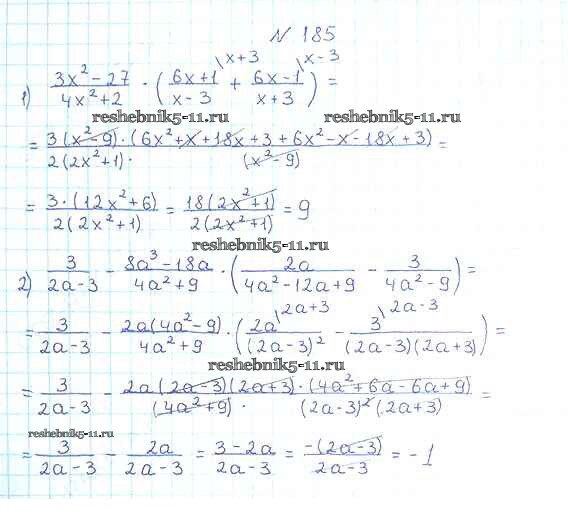 N 185
1) (3x²-27)/(4x²+2) · ((6x+1)/(x-3) \x+3 + (6x-1)/(x+3) \x-3) =
reshebnik5-11.ru reshebnik5-11.ru
= (3(x²-9)·(6x²+x+18x+3+6x²-x-18x+3))/(2(2x²+1)·(x²-9)) =
= (3·(12x²+6))/(2(2x²+1)) = (18(2x²+1))/(2(2x²+1)) = 9
reshebnik5-11.ru
2) 3/(2a-3) - (8a³-18a)/(4a²+9) · (2a/(4a²-12a+9) - 3/(4a²-9)) =
= 3/(2a-3) - (2a(4a²-9))/(4a²+9) · (2a\2a+3/(2a-3)² - 3\2a-3/((2a-3)(2a+3))) =
reshebnik5-11.ru
= 3/(2a-3) - (2a(2a-3)(2a+3)·(4a²+6a-6a+9))/((4a²+9)·(2a-3)²(2a+3)) =
reshebnik5-11.ru
= 3/(2a-3) - 2a/(2a-3) = (3-2a)/(2a-3) = (-(2a-3))/(2a-3) = -1